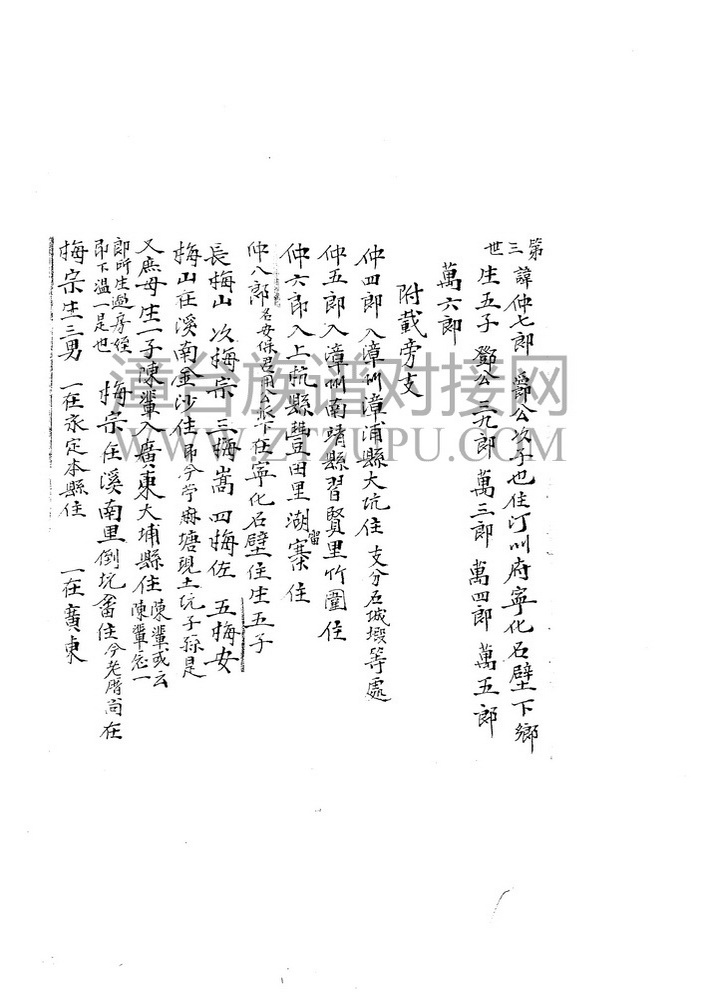 第三世 諱仲七郎 爵公次子也住汀州府寧化石壁下鄉
生五子 鄧公 三九郎 萬三郎 萬四郎 萬五郎
萬六郎
附載旁支
仲四郎入漳州漳浦縣大坑住 支分石城墩等處
仲五郎入漳州南靖縣習賢里竹圍住
仲六郎入上杭縣豐田里湖寨住
仲八郎 在寧化石壁住生五子
長梅山 次梅宗 三梅嵩 四梅佐 五梅安
梅山在溪南金沙住 麻塘現土坑子孫是
又庶母生一子陳輩入廣東大埔縣住 陳輩或云
陳輩念一
郎所生過房侄
即下溫一是也 梅宗在溪南里倒坑 住今老厝尚在
梅宗生三男 一在永定本縣住 一在廣東
漳台族谱对接网
WWW.ZTZUPU.COM